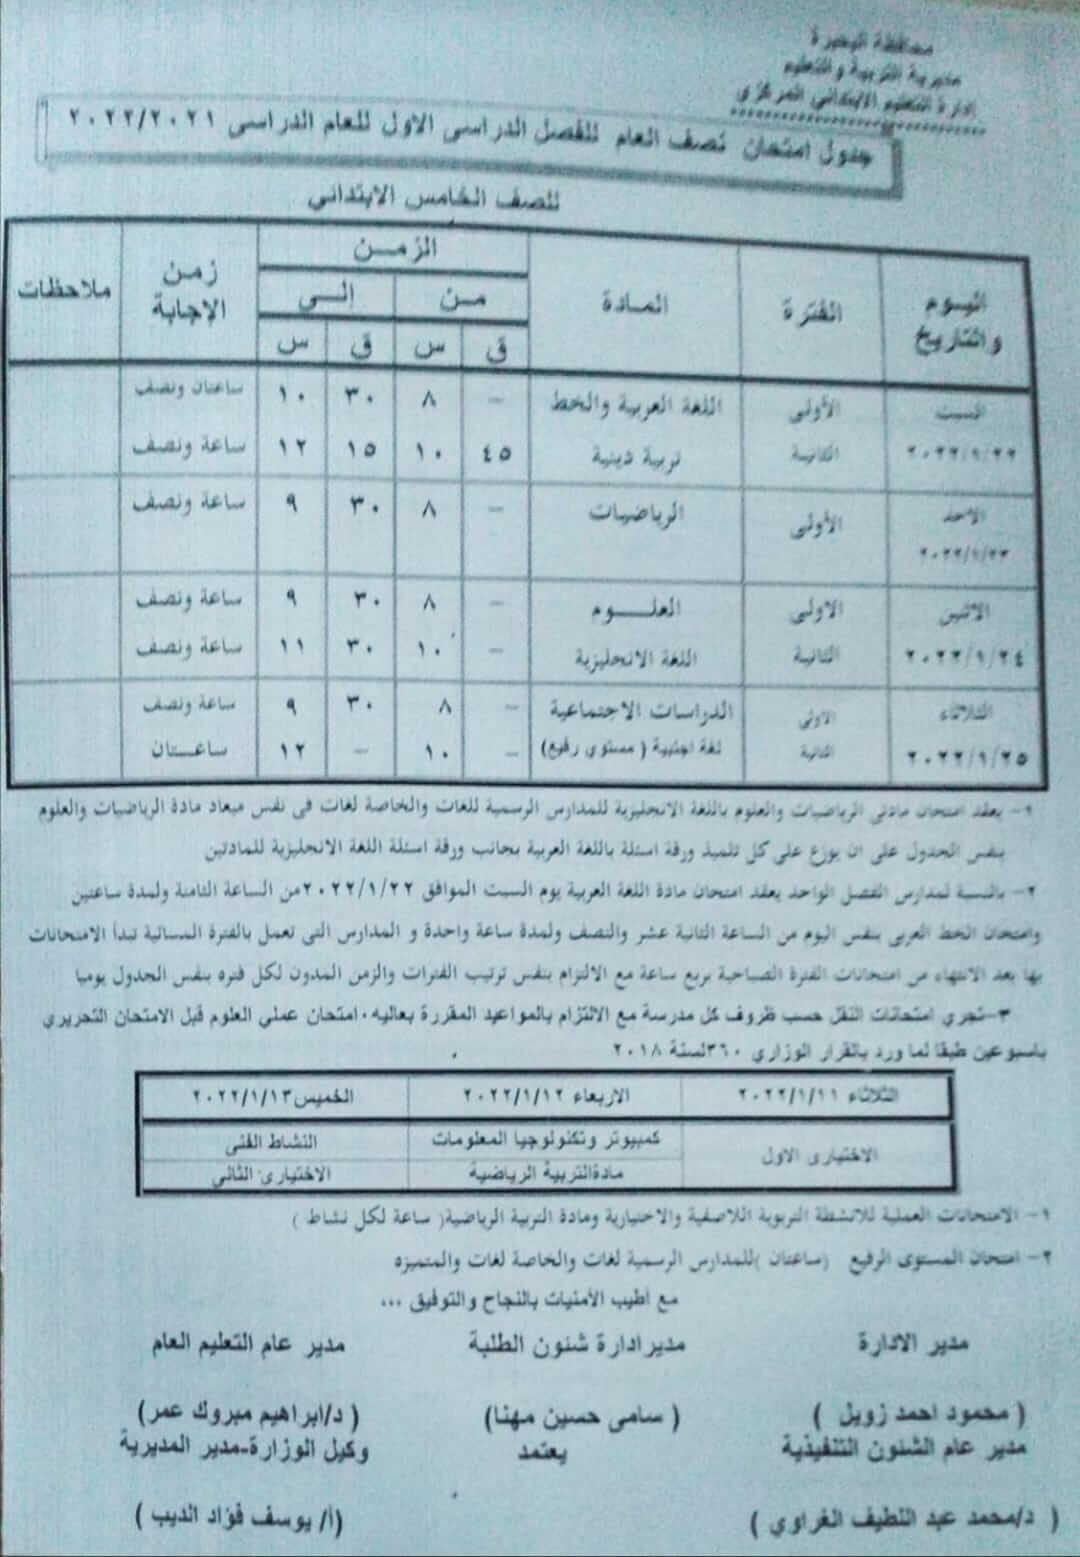 محافظة البحيرة
مديرية التربية والتعليم
إدارة التعليم الابتدائى المركزى
جدول امتحان نصف العام للفصل الدراسى الاول للعام الدراسى ٢٠٢٢/٢٠٢١
للصف الخامس الابتدائى
اليوم والتاريخ الفترة المادة الزمن زمن الإجابة ملاحظات
من الى
ق س ق س
السبت الأولى اللغة العربية والخط – ٨ ٣٠ ١٠ ساعتان ونصف
٢٠٢٢/١/٢٢ الثانية تربية دينية ٤٥ ١٠ ١٥ ١٢ ساعة ونصف
الاحد الأولى الرياضيات – ٨ ٣٠ ٩ ساعة ونصف
٢٠٢٢/١/٢٣
الاثنين الاولى العلـــوم – ٨ ٣٠ ٩ ساعة ونصف
٢٠٢٢/١/٢٤ الثانية اللغة الانجليزية – ١٠ ٣٠ ١١ ساعة ونصف
الثلاثاء الاولى الدراسات الاجتماعية – ٨ ٣٠ ٩ ساعة ونصف
٢٠٢٢/١/٢٥ الثانية لغة اجنبية ( مستوى رفيع) – ١٠ – ١٢ ساعـــتان
١- يعقد امتحان مادتى الرياضيات والعلوم باللغة الانجليزية للمدارس الرسمية للغات والخاصة لغات فى نفس ميعاد مادة الرياضيات والعلوم
بنفس الجدول على ان يوزع على كل تلميذ ورقة اسئلة باللغة العربية بجانب ورقة اسئلة اللغة الانجليزية للمادتين
٢- بالنسبة لمدارس الفصل الواحد يعقد امتحان مادة اللغة العربية يوم السبت الموافق ٢٠٢٢/١/٢٢من الساعة الثامنة ولمدة ساعتين
وامتحان الخط العربى بنفس اليوم من الساعة الثانية عشر والنصف ولمدة ساعة واحدة و المدارس التى تعمل بالفترة المسائية تبدأ الامتحانات
بها بعد الانتهاء من امتحانات الفترة الصباحية بربع ساعة مع الالتزام بنفس ترتيب الفترات والزمن المدون لكل فتره بنفس الجدول يوميا
٣–تجري امتحانات النقل حسب ظروف كل مدرسة مع الالتزام بالمواعيد المقررة بعاليه ٠امتحان عملي العلوم قبل الامتحان التحريري
باسبوعين طبقا لما ورد بالقرار الوزاري ٣٦٠لسنة ٢٠١٨
الثلاثاء ٢٠٢٢/١/١١ الاربعاء ٢٠٢٢/١/١٢ الخميس٢٠٢٢/١/١٣
الاختيارى الاول كمبيوتر وتكنولوجيا المعلومات النشاط الفنى
مادةالتربية الرياضية الاختيارى الثانى
١- الامتحانات العملية للانشطة التربوية اللاصفية والاختيارية ومادة التربية الرياضية( ساعة لكل نشاط )
٢- امتحان المستوى الرفيع (ساعتان )للمدارس الرسمية لغات والخاصة لغات والمتميزه
مع أطيب الأمنيات بالنجاح والتوفيق ...
مدير الادارة مديرادارة شئون الطلبة مدير عام التعليم العام
( محمود احمد زويل ) ( سامى حسين مهنا) ( د/ابراهيم مبروك عمر)
مدير عام الشئون التنفيذية يعتمد وكيل الوزارة-مدير المديرية
( د/محمد عبد اللطيف الغراوي ) (أ/ يوسف فؤاد الديب )